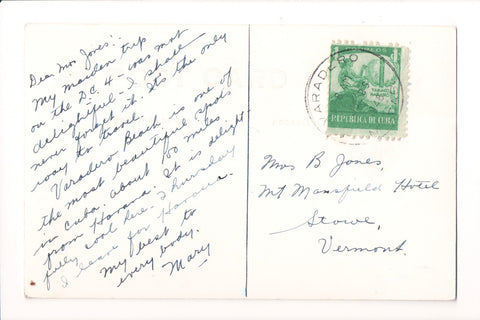 Dear Mrs Jones:
My maiden trip
on the D.C. 4 - was most
delightful - I shall
never forget it. It's the only
way to travel.
Varadero Beach is one of
the most beautiful spots
in Cuba. about 80 miles
from Havana. It is delight-
fully cool here. Thursday
I leave for Havana.
My best to
every body.
Mary
VARADERO
CORREOS
REPUBLICA DE CUBA
Mrs B Jones,
Mt Mansfield Hotel
Stowe,
Vermont.